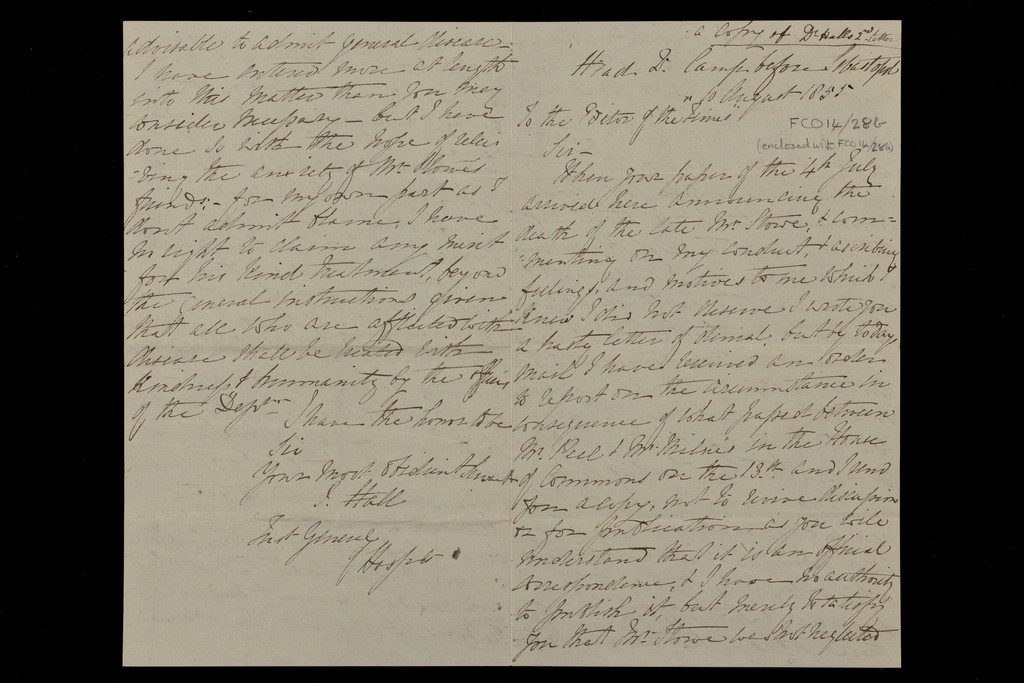 a Copy of Dr Halls 2nd letter
Head Qr Camp before Sebastopol
10 August 1855
To the Editor of the "Times"
FCO14/28b
(enclosed with FCO14/28a)
Sir—
When your paper of the 4th July
arrived here announcing the
death of the late Mr. Stowe, & com=
=menting on my conduct, & ascribing
feelings, and motives to me which I
knew I did not deserve I wrote you
a hasty letter of denial, but by todays
mail I have received an order
to report on the circumstance in
consequence of what passed between
Mr. Peel & Mr. Milnes in the House
of Commons on the 13th and I send
you a copy, not to revive discussion
or for publication, as you will
understand that it is an official
correspondence, & I have no authority
to publish it, but merely to satisfy
you that Mr. Stowe was not neglected
advisable to admit general disease—
I have entered more at length
into this matter than you may
consider necessary— but I have
done so with the hope of relie
-ving the anxiety of Mr. Stowes
friends.— for my own part as I
don't admit blame, I have
no right to claim any merit
for his kind treatment, beyond
the general instructions given
that all who are afflicted with
disease shall be treated with
kindness & humanity by the officers
of the Depmt
I have the honor to be
Sir
Your most obedient Servant
J. Hall
Inst General
Hospls